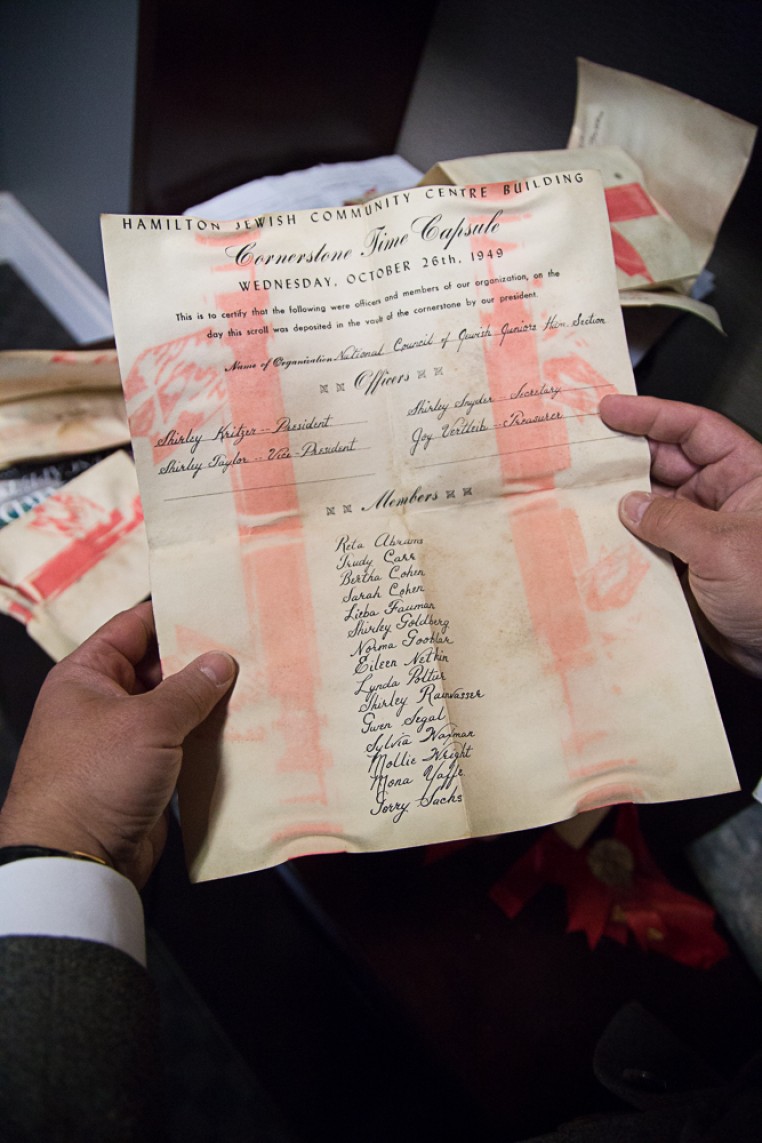 HAMILTON JEWISH COMMUNITY CENTRE BUILDING
Cornerstone Time Capsule
WEDNESDAY, OCTOBER 26th, 1949
This is to certify that the following were officers and members of our organization, on the
day this scroll was deposited in the vault of the cornerstone by our president.
Name of Organization National Council of Jewish Juniors Ham. Section
Officers
Shirley Kritzer -- President
Shirley Snyder -- Secretary
Shirley Taylor -- Vice-President
Joy Vertleib -- Treasurer
Members
Reta Abrams
Trudy Carr
Bertha Cohen
Sarah Cohen
Lieba Fauman
Shirley Goldberg
Norma Gooblar
Eileen Netkin
Lynda Poltus
Shirley Rainvasser
Gwen Segal
Sylvia Waxman
Mollie Wright
Mona Yaffe
Sachs